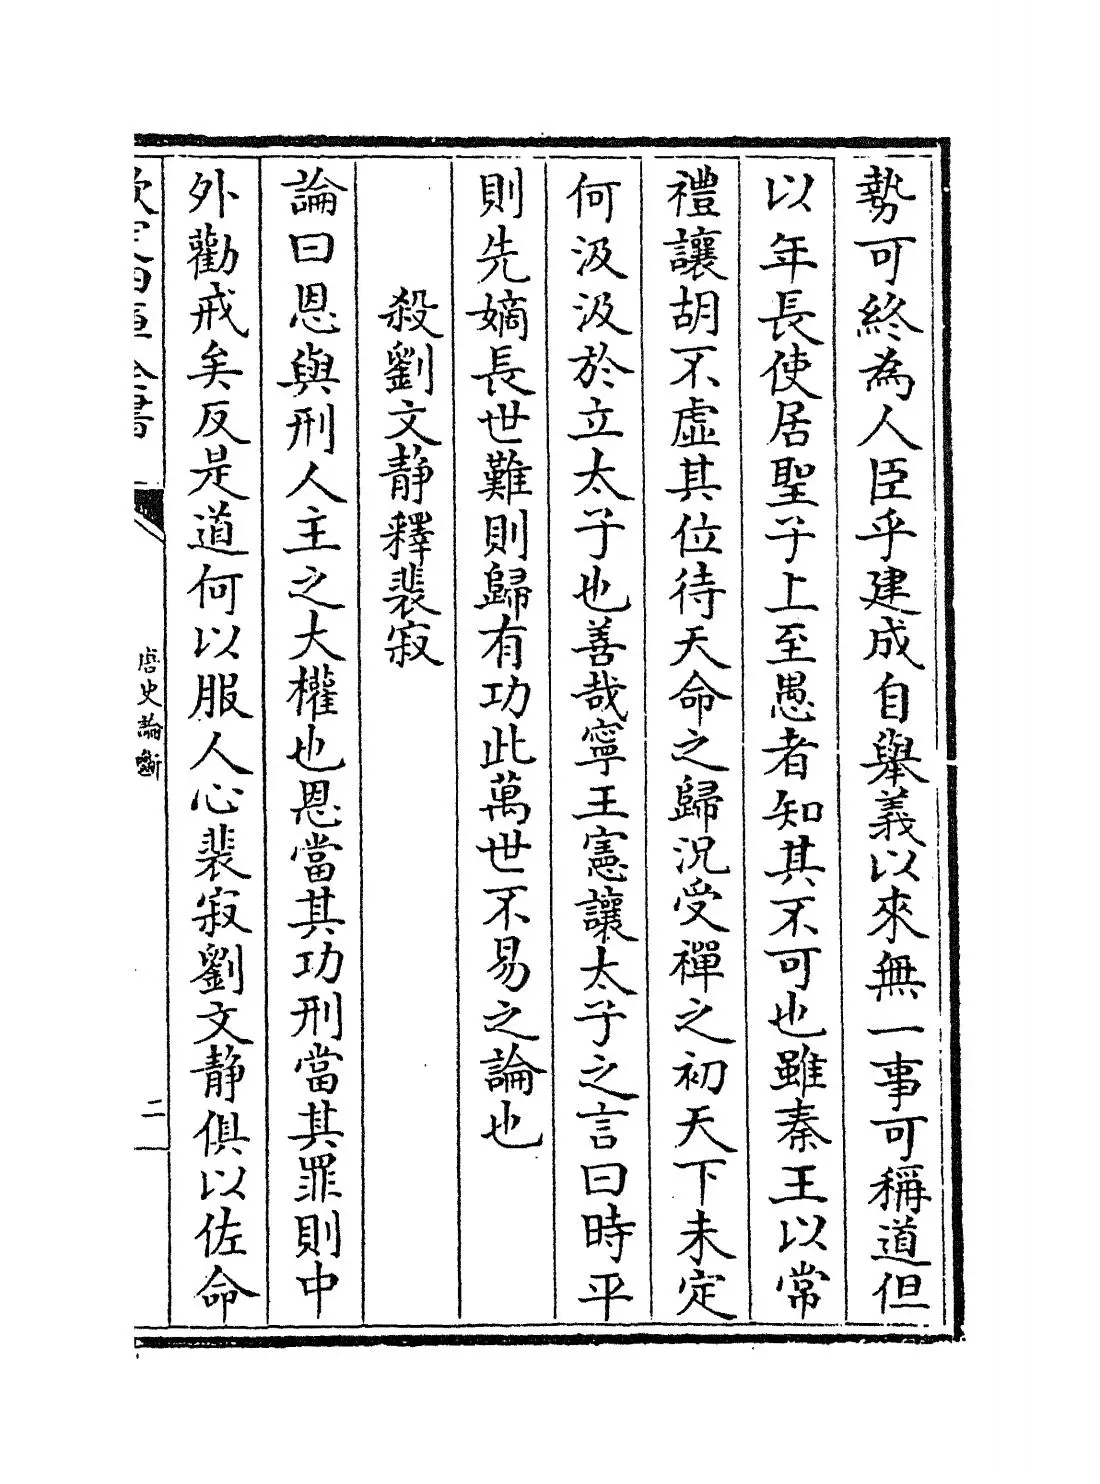 勢可終為人臣乎建成自舉義以來無一事可稱道但
以年長使居聖子上至愚者知其不可也雖秦王以常
禮讓胡不虛其位待天命之歸況受禪之初天下未定
何汲汲於立太子也善哉寧王憲讓太子之言曰時平
則先嫡長世難則歸有功此萬世不易之論也
殺劉文静釋裴寂
論曰恩與刑人主之大權也恩當其功刑當其罪則中
外勸戒矣反是道何以服人心裴寂劉文静俱以佐命
欽定四庫全書
唐史論斷
二